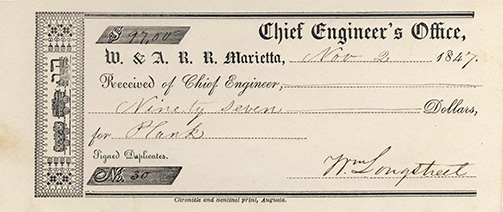 $ 97,00 Chief Engineer's Office,
W. & A. R. R. Marietta, Nov 2 1847.
Received of Chief Engineer,
Ninety seven Dollars,
for Plank
Signed Duplicates.
No. 30 Wm Longstreet
Chronicle and Sentinel print, Augusta.